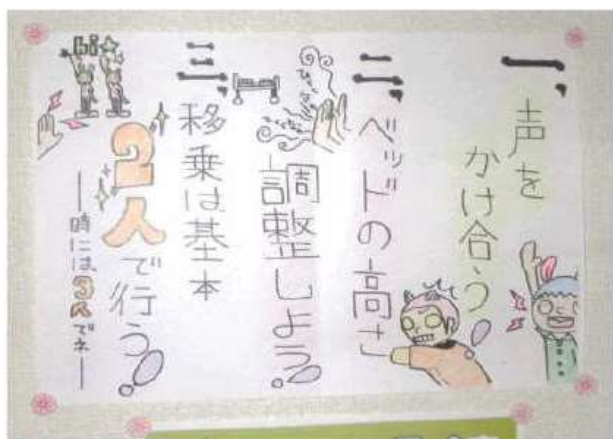 一、声を
かけ合う!
二、ベッドの高さ
調整しよう!
三、移乗は基本
2人で行う!
―時には3人でネ―
hi☆